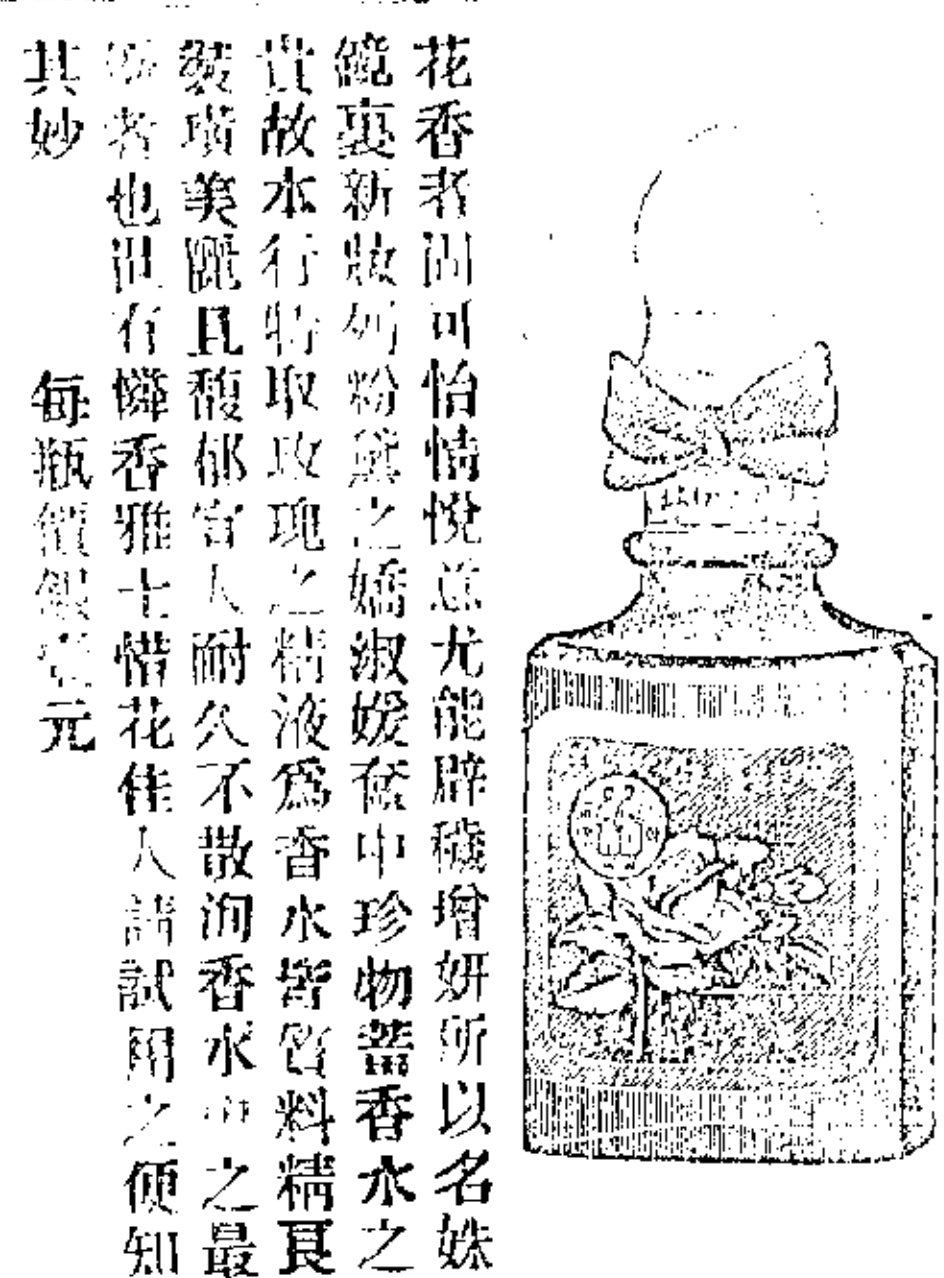 花香者固可怡情悅意尤能辟穢增妍所以名姝
鏡裏新妝列粉黛之嬌淑媛奩中珍物蓄香水之
貴故本行特取玫瑰之精液為香水皆質料精良
裝璜美麗且馥郁宜人耐久不散洵香水中之最
者也世有憐香雅士惜花佳人請試用之便知
其妙
每瓶價銀壹元